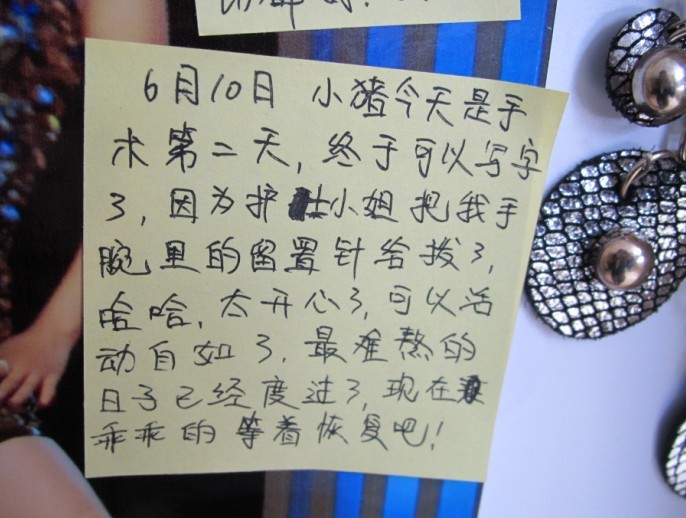 6月10日 小猪今天是手
术第二天,终于可以写字
了,因为护士小姐把我手
腕里的留置针给拨了,
哈哈,太开心了,可以活
动自如了,最难熬的
日子已经度过了,现在
乖乖的等着恢复吧!